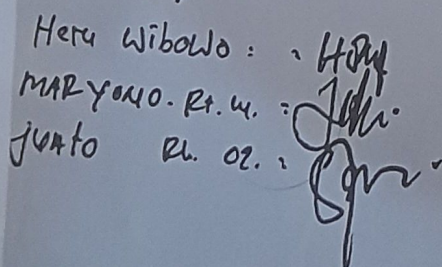 Heru Wibowo :
MARYONO. Rt. 
juAto Rt. 02. :